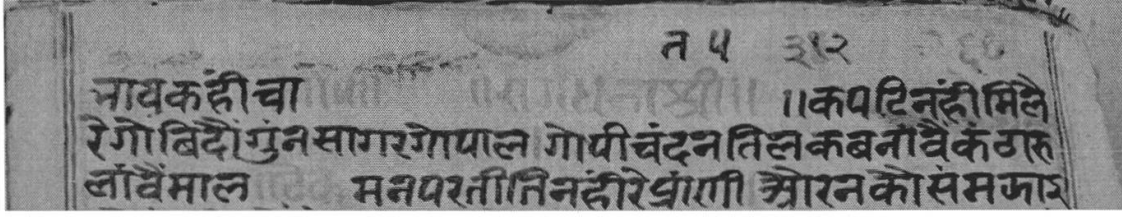 त ५ ३१२
भावकहीचा ॥कपटिनंहीमिलै
रेगोबिदौगुंनसागरगोपाल गोपीचंदनतिलकबनावैकंठारु
लांवैंमाल मनपरतीतिनंहीरेप्रांणी ओरनकौसंमझाइ